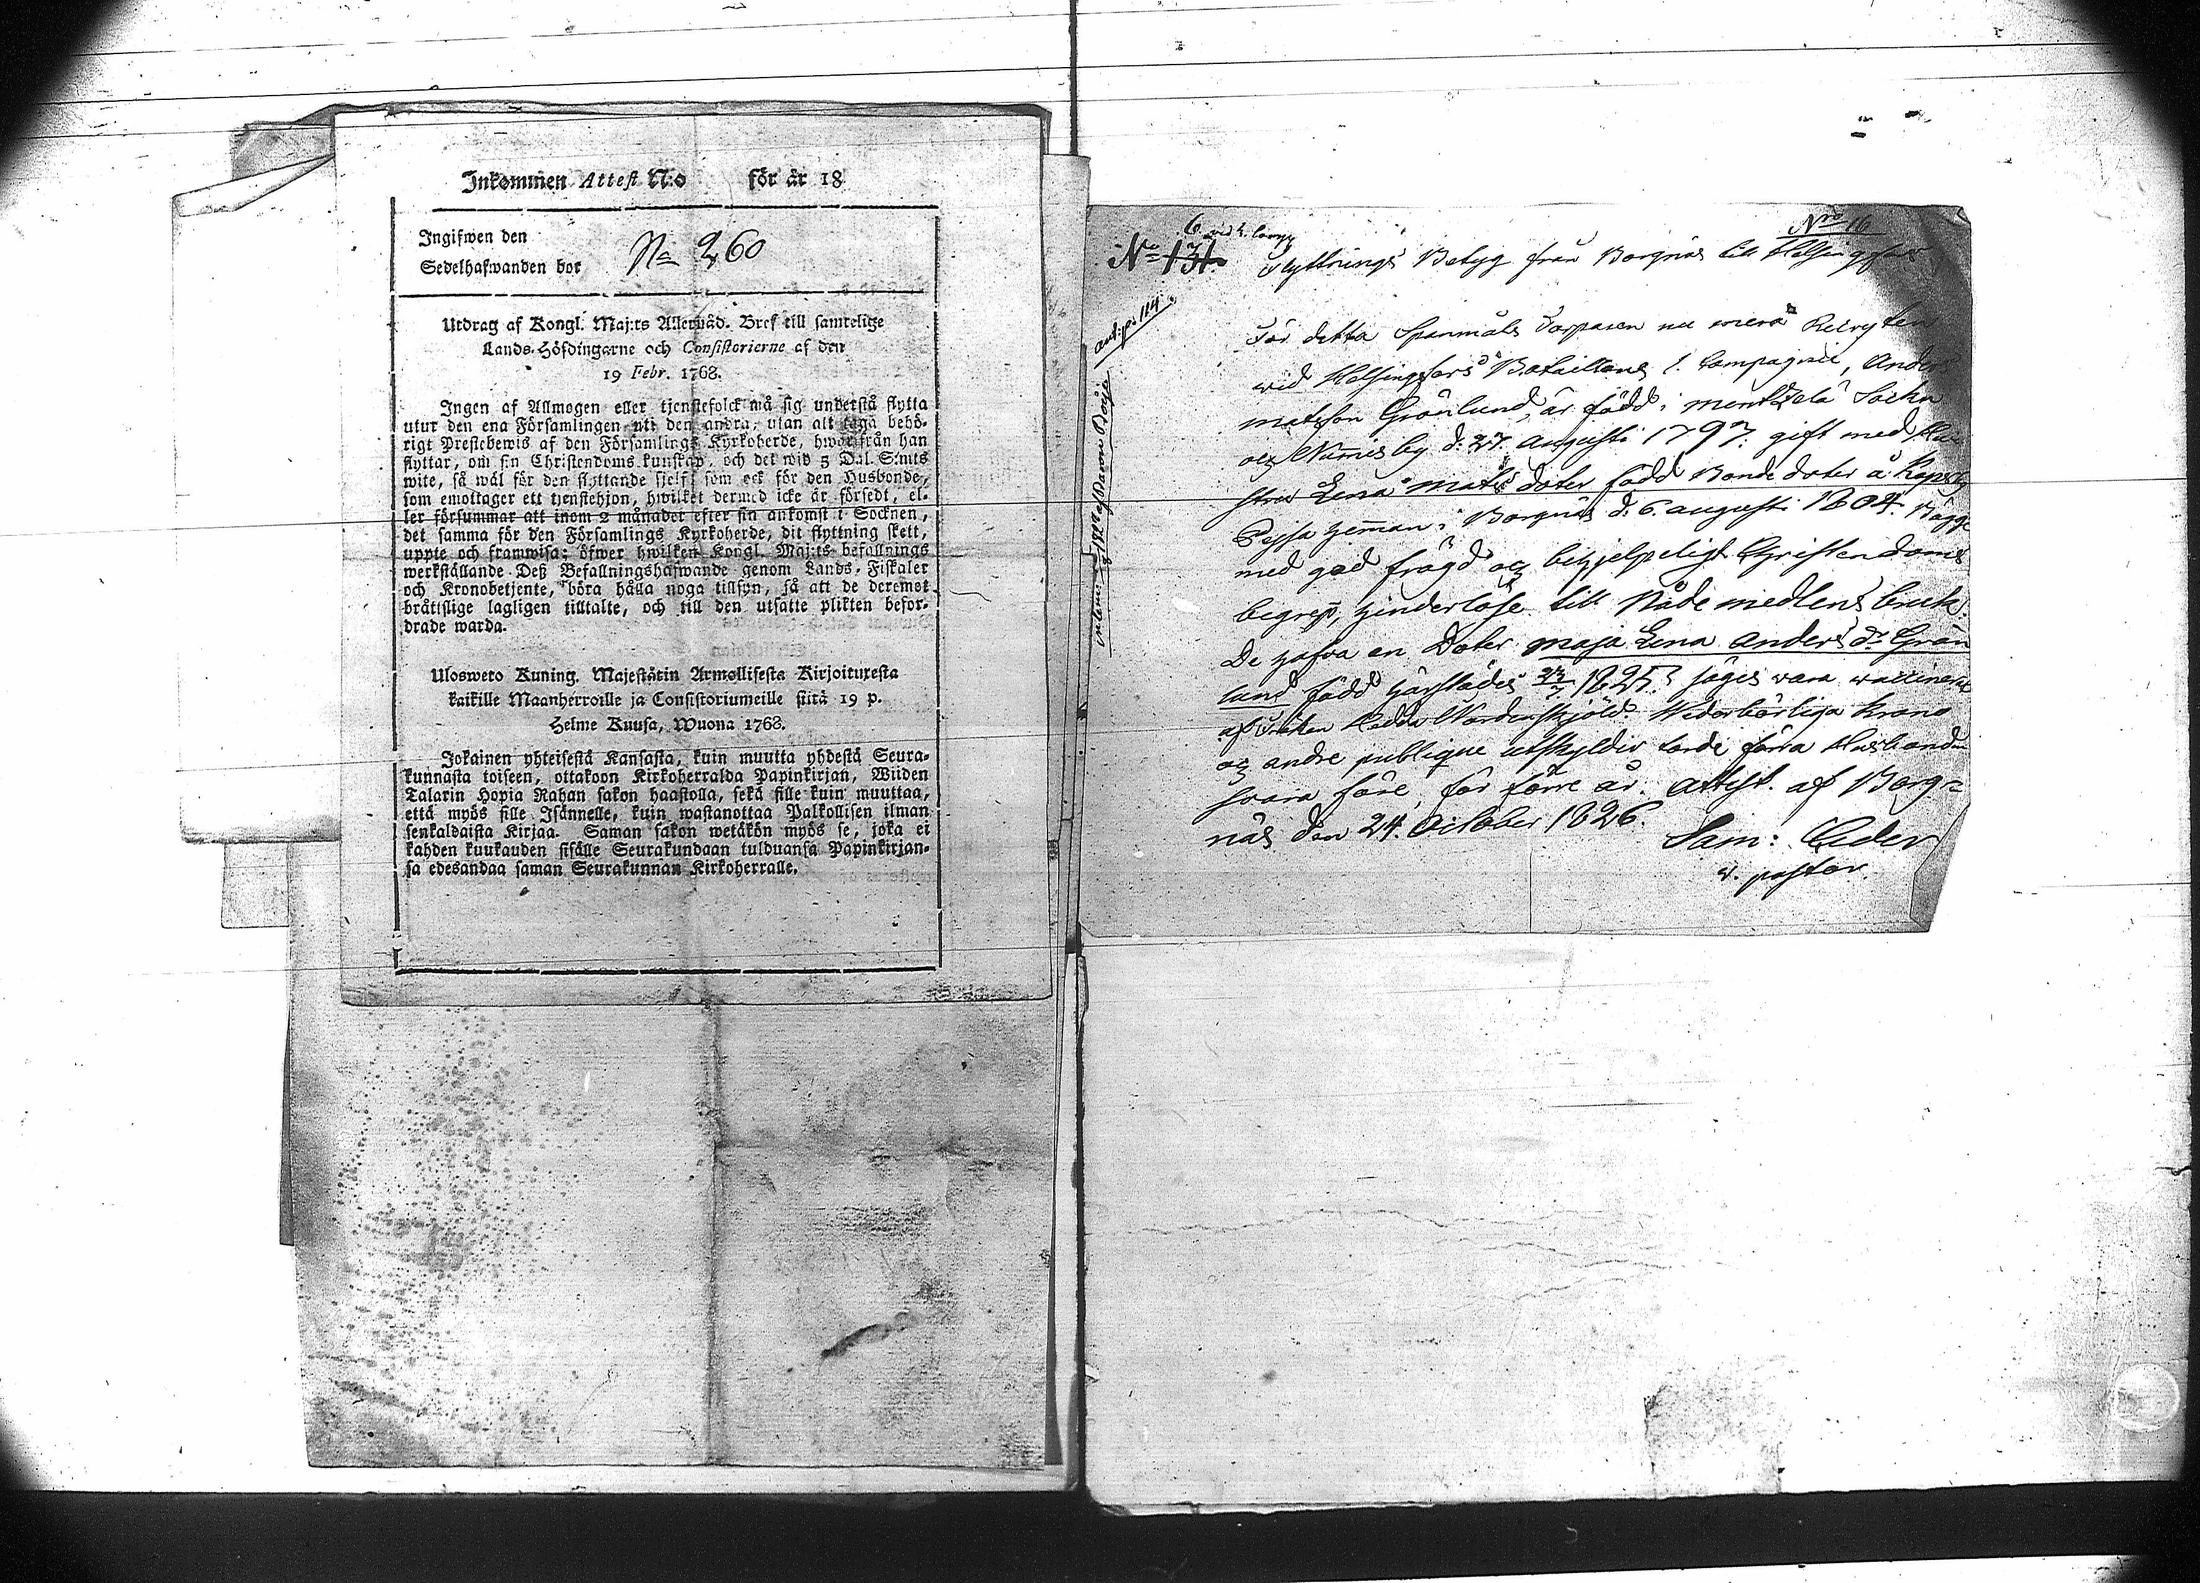 Inkommen Attest N:o för år 18
Ingifwen den
Sedelhafwanden bor
No 260
Utdrag af Kongl. Maj:ts Allernåd. Bref till samtelige
Lands-Höfdingarne och Consistorierne af den
19 Febr. 1768.
Ingen af Allmogen eller tjenstefolck må sig understå flytta
utur den ena Församlingen uti den andra, utan att taga behö-
rigt Prestebewis af den Församlings Kyrkoherde, hwarifrån han
flyttar, om sin Christendoms kunskap, och det wid 5 Dal. S:mts
wite, så wäl för den flyttande sjelf, som ock för den Husbonde,
som emottager ett tjenstehjon, hwilket dermed icke är försedt, el-
ler försummar att inom 2 månader efter sin ankomst i Socknen,
det samma för den Församlings Kyrkoherde, dit flyttning skett,
uppte och framwisa; öfwer hwilken Kongl. Maj:ts befallnings
werkställande Deß Befallningshafwande genom Lands-Fiskaler
och Kronobetjente, böra hålla noga tillsyn, så att de deremot
bråttslige lagligen tilltalte, och till den utsatte plikten befor-
drade warda.
Ulosweto Kuning. Majestätin Armollisesta Kirjoituxesta
kaikille Maanherroille ja Consistoriumeille siitä 19 p.
Helme Kuusa, Wuona 1768.
Jokainen yhteisestä Kansasta, kuin muutta yhdestä Seura-
kunnasta toiseen, ottakoon Kirkoherralda Papinkirjan, Wiiden
Talarin Hopia Rahan sakon haastolla, sekä sille kuin muuttaa,
että myös sille Isännelle, kuin wastanottaa Palkollisen ilman
senkaldaista Kirjaa. Saman sakon wetäkön myös se, joka ei
kahden kuukauden sisälle Seurakundaan tulduansa Papinkirjan-
sa edesandaa saman Seurakunnan Kirkoherralle.
Nro 16
No 131.
Flyttnings Betyg från Borgnäs till Helsingfors
För detta Spanmåls Torparen nu mera Recryten
wid Helsingfors Bataillons 1. Compagnie, Anders
matsson Grönlund, är född i mentzelä Sockn
och Numis by d. 27 augusti 1797. gift med Hu-
stru Lena mats doter född Bonde doter å
i Borgnäs d. 6. augusti 1804. Bägge
med god frägd og behjelpeligt Christendoms
begrep, hinderlöse till Nådemedlens bruk.
De hafva en Doter maja Lena anders dr. Grön
lund född härstädes 1825. säges vara waccinerad
af Fröken Hedda Nordenskjöld. Wederbörliga Krono
og andre publique utskylder torde förra Husbonden
svara före, för förre år. attest. af Borg=
näs den 24. October 1826.
Sam: Ceder
v. pastor.